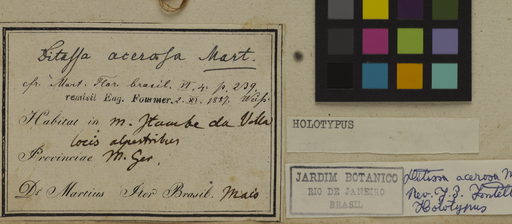 Ditassa acerosa Mart.
cfr. Mart. Flor. brasil. VI. 4. p. 239.
remisit Eug. Fournier. 2. XI. 1887.
Habitat in m. Itambe da Villa
locis alpestribus
Provinciae M. Ger.
Dr Martius Iter Brasil. Maio
HOLOTYPUS
JARDIM BOTANICO
RIO DE JANEIRO
BRASIL
Ditassa acerosa M
Rev. J. F. Fontell
Holotypus